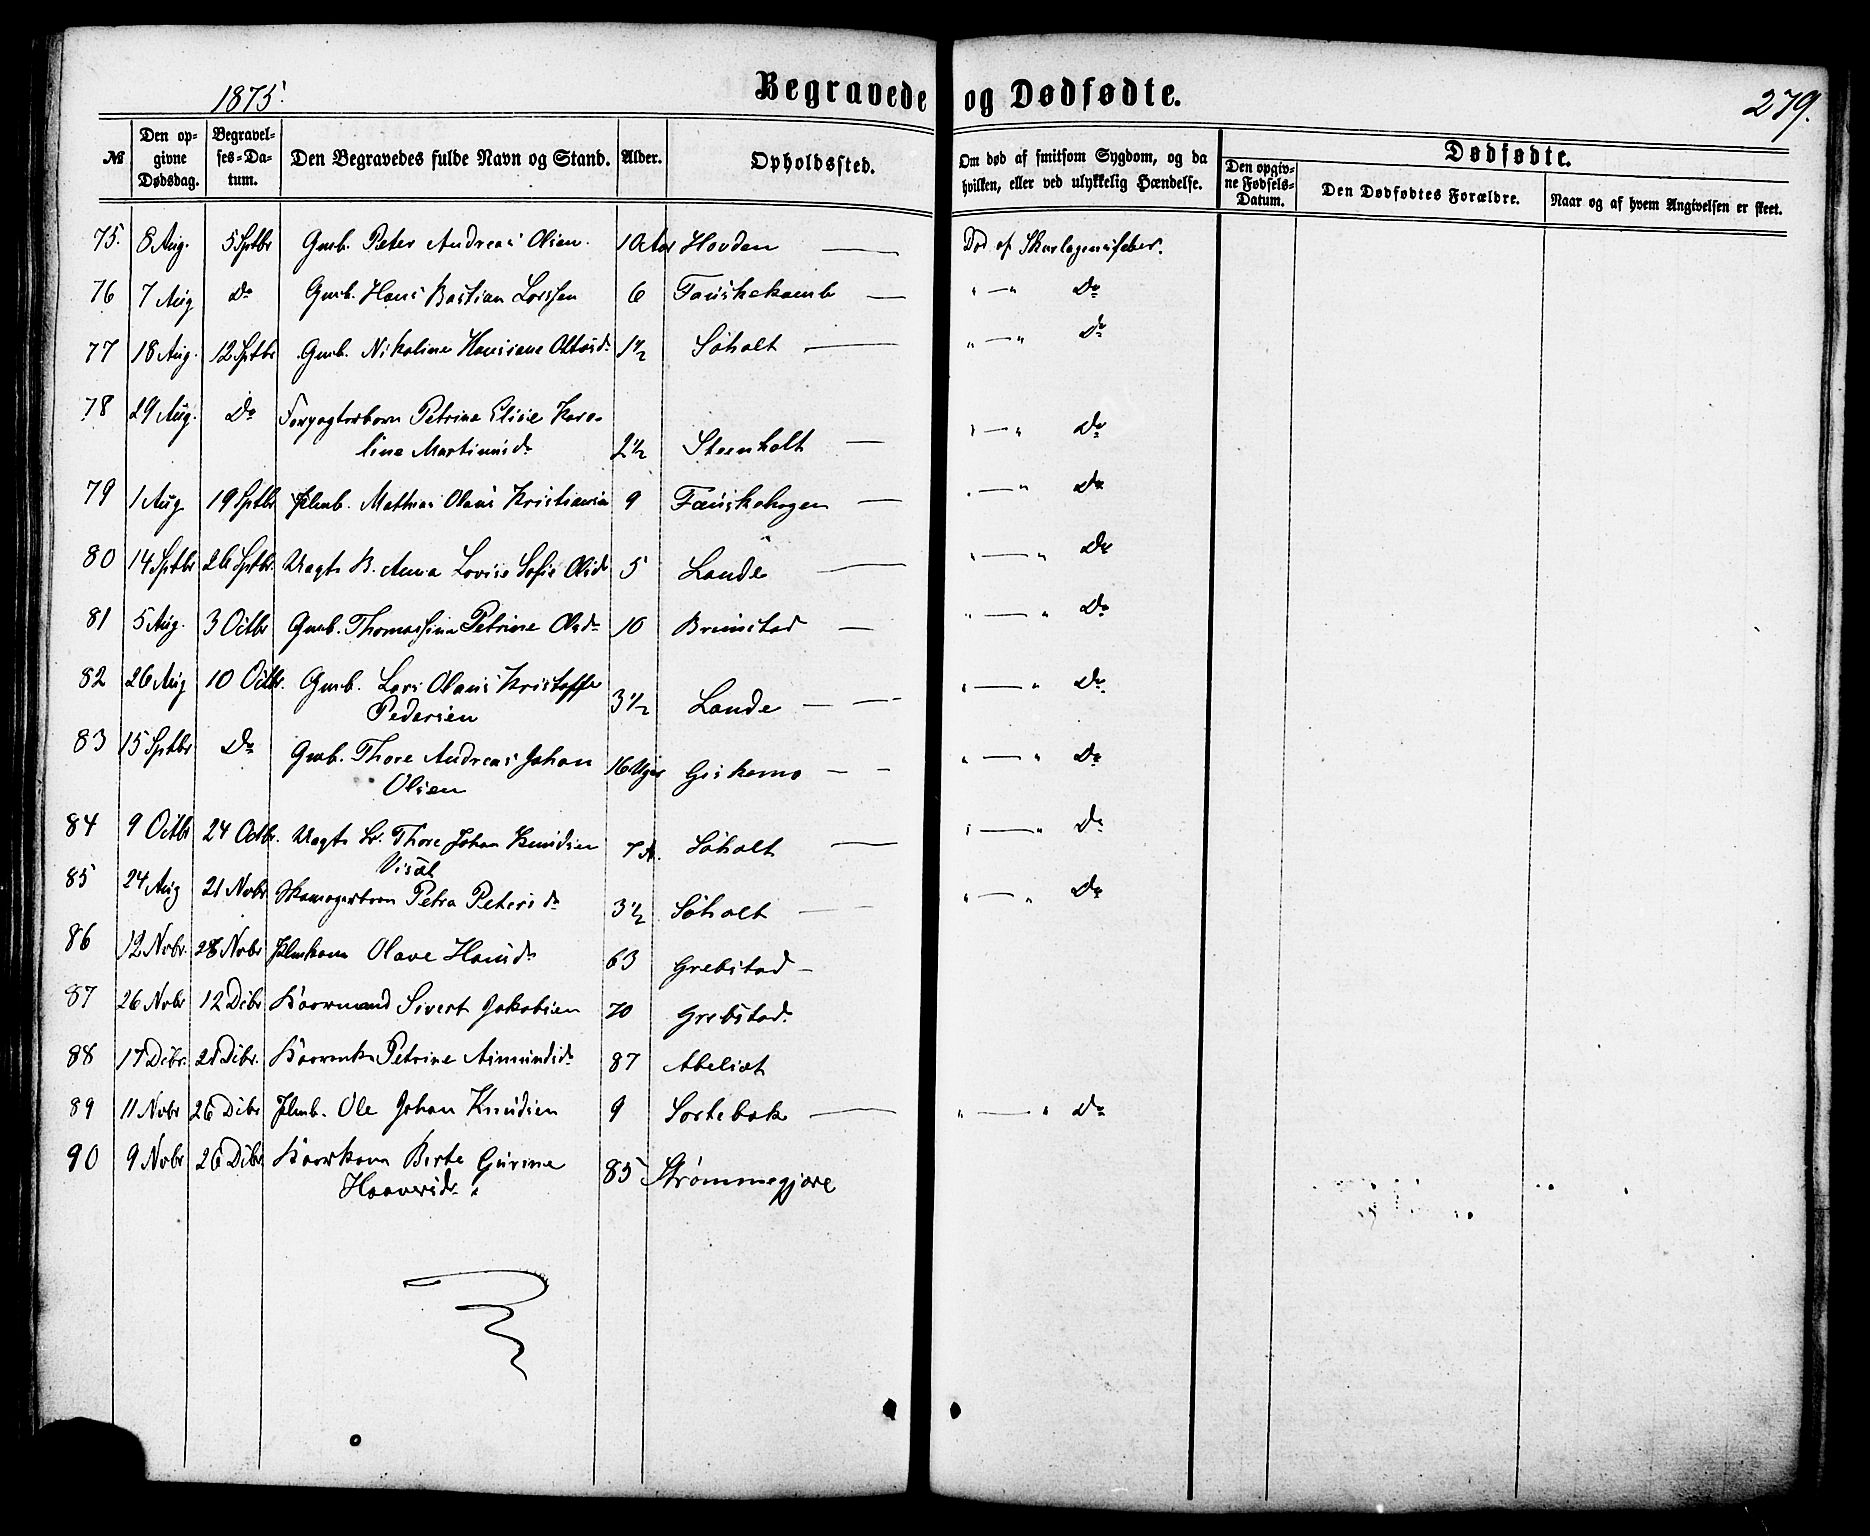 1875.
Begravede og Dødfødte.
279.
№
Den opgivne Dødsdag.
Begravelses-Datum.
Den Begravedes fulde Navn og Stand.
Alder.
Opholdssted.
Om død af smitsom Sygdom, og da hvilken, eller ved ulykkelig Hændelse.
Dødfødte.
Den opgivne Fødsels-Datum.
Den Dødfødtes Forældre.
Naar og af hvem Angivelsen er skeet.
75. 8 Aug. 5 Sptbr Gmb. Peter Andreas Olsen. 10 Aar Hovden — Død af Skarlagensfeber.
76 7 Aug Do Gmb. Hans Bastian Larssen 6 Fauskekamb — " — " Do
77 18 Aug. 12 Sptbr Gmb. Nikoline Hansine Oltäsd. 1½ Søholt — " — " Do
78 29 Aug. Do Forpagterbarn Petrine Elise Karo-
line Martinusd. 2½ Steenholt — " — " Do
79 1 Aug 19 Sptbr Jlmb. Mathias Olaus Kristiansen 9 Fauskehagen — " — " Do
80 14 Sptbr 26 Sptbr. B. Anna Lovise Sofie Olsd. 5 Lande — " — " Do
81 5 Aug. 3 Octbr Gmb. Thomassine Petrine Olsd. 10 Brunstad — " — " Do
82 26 Aug 10 Octbr. Gmb. Lars Olaus Kristoffer
Pedersen 3½ Lande — — " — " Do
83 15 Sptbr Do Gmb. Thore Andreas Johan
Olsen 16 Uger Giskemo — — " — " Do
84 9 Octbr 24 Octbr. Thore Johan Knudsen
Viset 7 A. Søholt — " — " Do
85 24 Aug 21 Novbr Skomagerbarn Petra Petersd. 3½ Søholt — — " — " Do
86 12 Novbr. 28 Novbr Jlmkone Olave Hansd. 63 Grebstad —
87 26 Novbr 12 Decbr Kaarmand Sivert Jakobsen 70 Grebstad.
88 Decbr. 21 Decbr. Petrine Aimundsd. 87 Abelsæt
89 11 Novbr 26 Decbr Jlmb. Ole Johan Knudsen 9 Sortebak — " — " Do
90 9 Novbr 26 Decbr Kaarkone Birte Gurine
Haaversd. 85 Strømmegjære